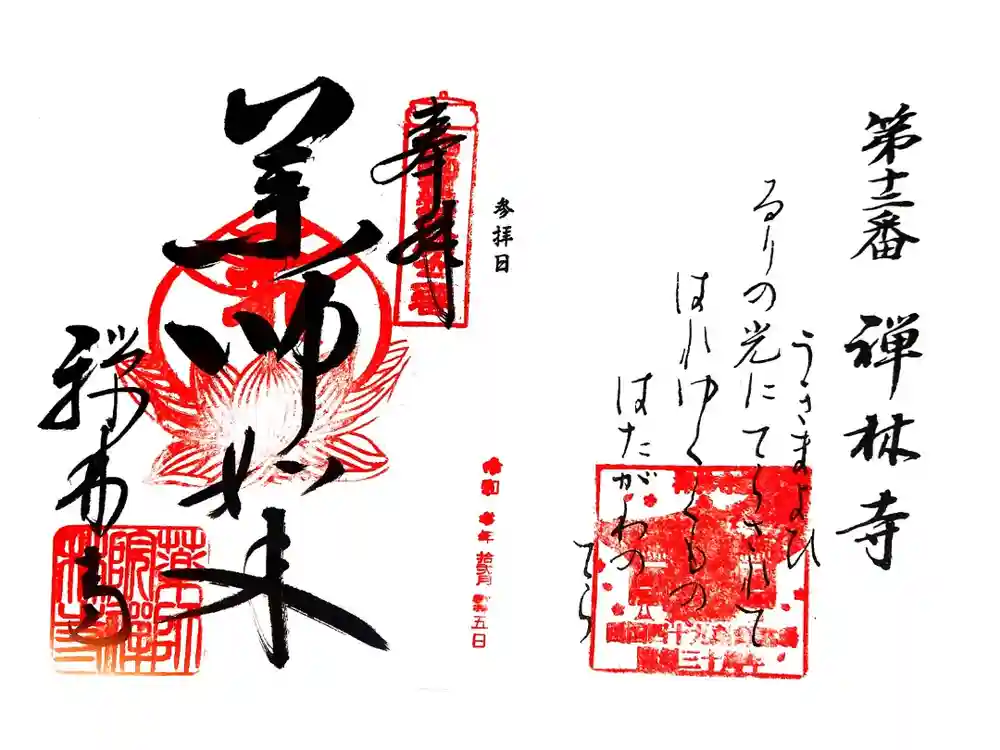 第十二番 禅林寺
うきまよひ
るりの光にてらされて
はれゆくくもの
はたがわの
てら
参拝日
奉拝
薬師如来
禅林寺